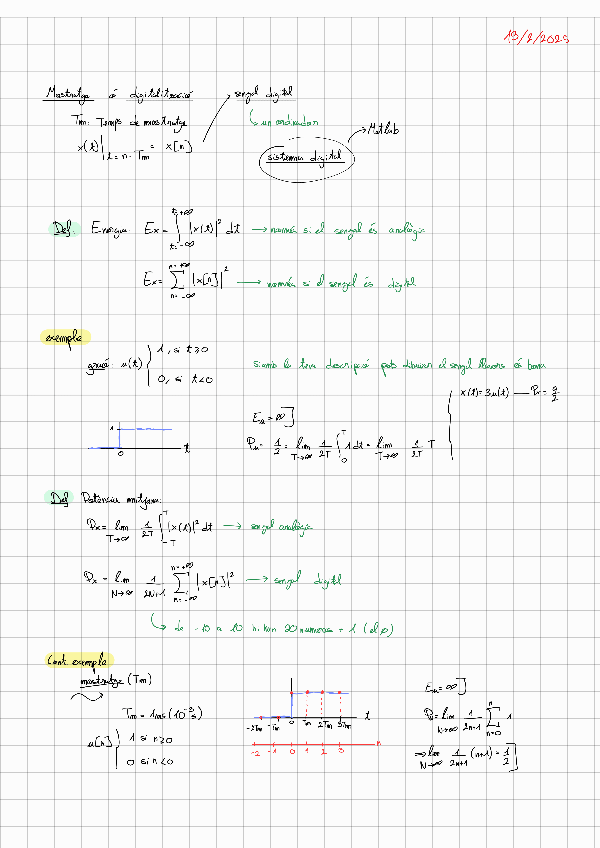 19/2/2025
Mostratge ó digitalització
senyal digital
Tm: Temps de mostratge
↳ un ordinador
x(t)|t = n · Tm = x[n]
→ Matlab
sistema digital
Def: Energia: Ex = ∫ t=-∞ t=+∞ |x(t)|² dt → només si el senyal és analògic
Ex = Σ n=-∞ n=+∞ |x[n]|² → només si el senyal és digital
exemple
graó: u(t) { 1, si t≥0
0, si t<0
si amb la teva descripció pots dibuixar el senyal llavors és bona
x(t) = 3u(t) — Px = 9/2
1
0 t
Eu = ∞]
Pu = 1/2 = lim T→∞ 1/2T ∫ 0 T 1 dt = lim T→∞ 1/2T · T
Def Potència mitjana:
Px = lim T→∞ 1/2T ∫ -T T |x(t)|² dt → senyal analògic
Px = lim N→∞ 1/2N+1 Σ n=-∞ n=+∞ |x[n]|² → senyal digital
↳ de -10 a 10 hi han 20 numeros + 1 (el 0)
Cont. exemple
mostratge (Tm)
Tm = 1ms (10⁻³ s)
u[n] { 1 si n≥0
0 si n<0
-2Tm -Tm 0 Tm 2Tm 3Tm t
-2 -1 0 1 2 3 n
Eu = ∞]
Pu = lim N→∞ 1/2n+1 Σ n=0 n 1
⇒ lim N→∞ 1/2n+1 (n+1) = 1/2]